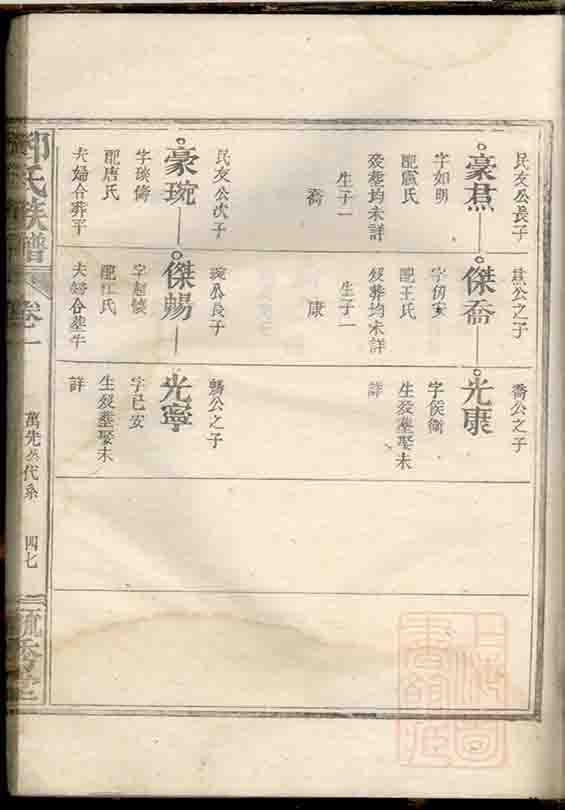 民友公長子
豪焄
字如明
配盧氏
歿塟均未詳
生子一
喬
民友公次子
豪琬
字琰倚
配唐氏
夫婦合葬平
焄公之子
傑喬
字仿安
配王氏
歿葬均未詳
生子一
康
琬公長子
傑賜
字超懷
配江氏
夫婦合塟牛
喬公之子
光康
字侯衛
生歿塟娶未
詳
賜公之子
光寧
字已安
生歿塟娶未
詳
氏族譜
卷一
萬先公代系
四七
上海圖書館藏